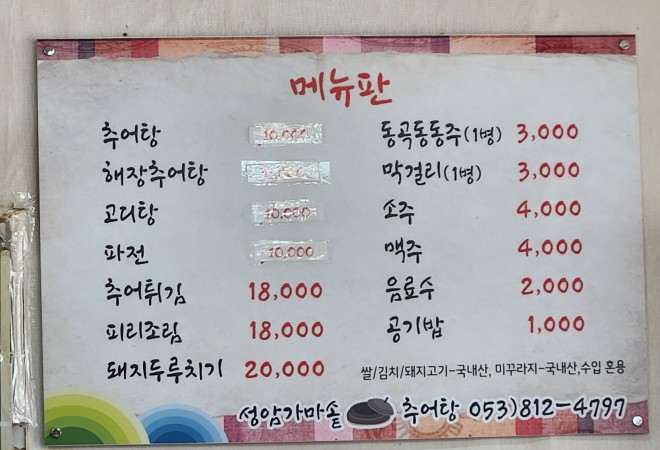 메뉴판
추어탕 10,000
해장추어탕
고디탕 10,000
파전 10,000
추어튀김 18,000
피리조림 18,000
돼지두루치기 20,000
동곡동동주(1병) 3,000
막걸리(1병) 3,000
소주 4,000
맥주 4,000
음료수 2,000
공기밥 1,000
쌀/김치/돼지고기-국내산, 미꾸라지-국내산,수입 혼용
성암가마솥 추어탕 053)812-4797